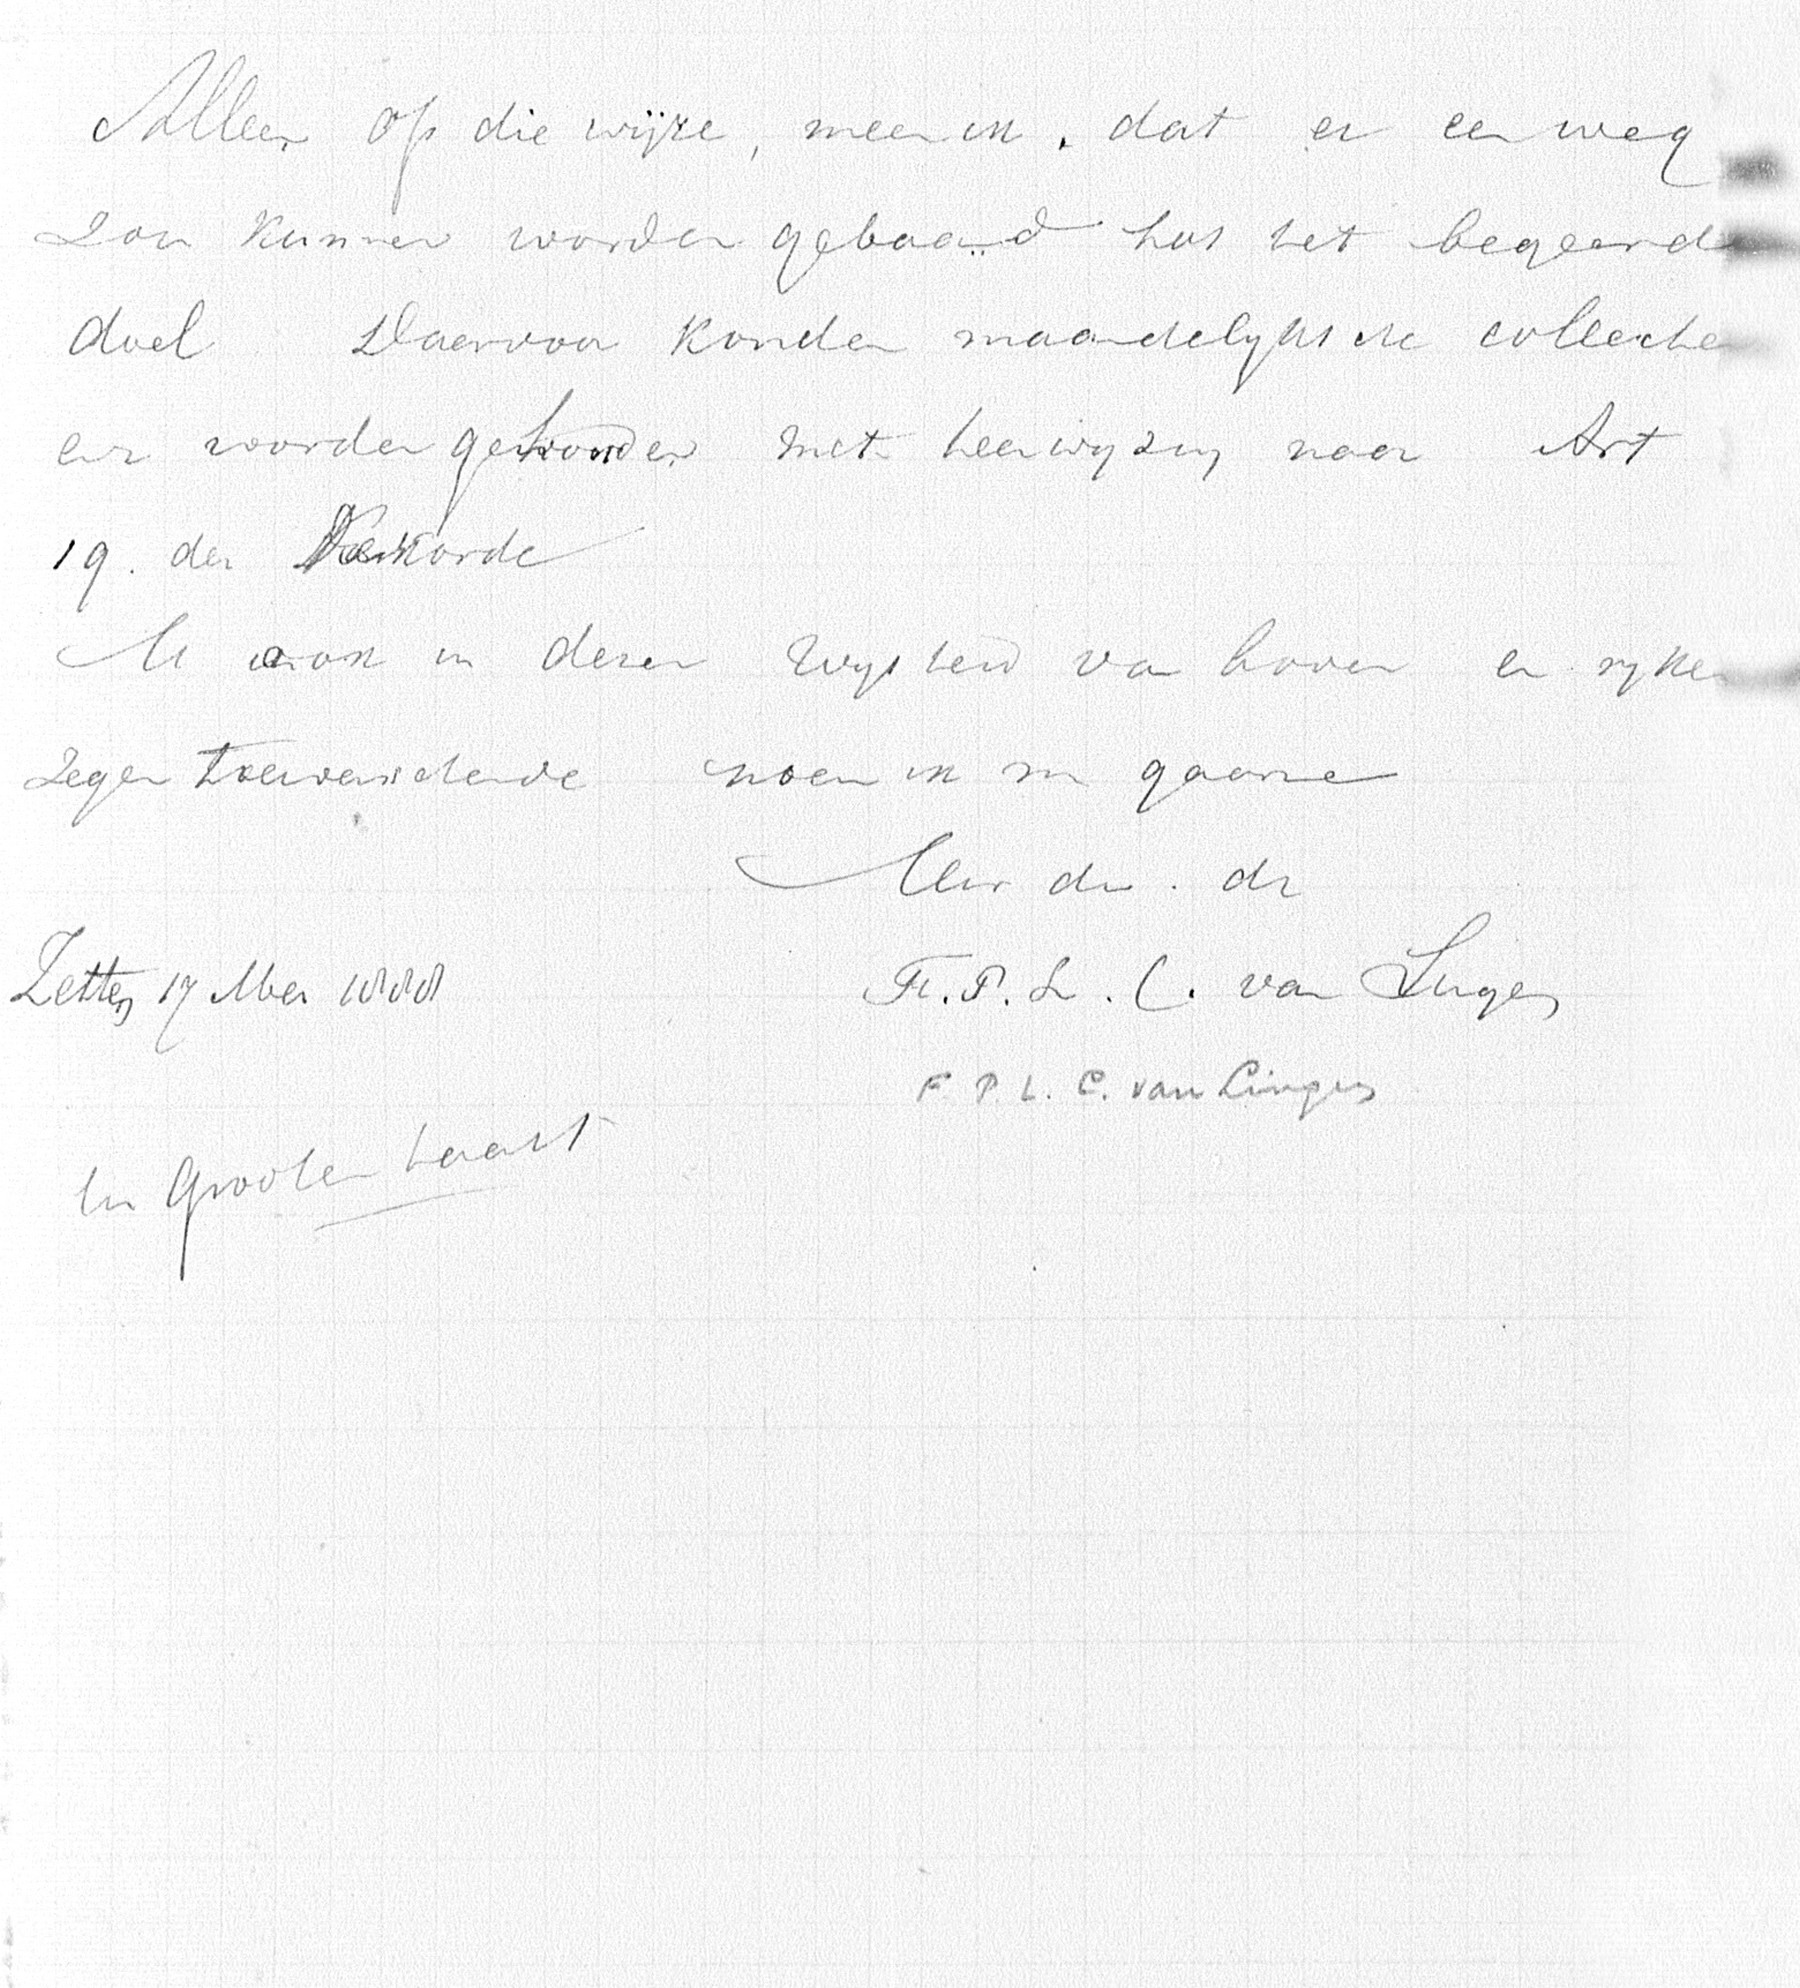 Alleen op die wijze, meen ik, dat er een weg
zou kunnen worden gebaand tot het begeerde
doel Daervoor konden maandelijksche collecten
en worden gehouden met heenwijzing naar Art
19. der Kerkorde
U ook in dezen wijsheid van boven en rijken
zegen toewenschende noem ik m gaarne
Uw dw. dr
Zetten 17 Mei 1888 F. P. L. C. van Lingen
F. P. L. C. van Lingen
In grooten haast